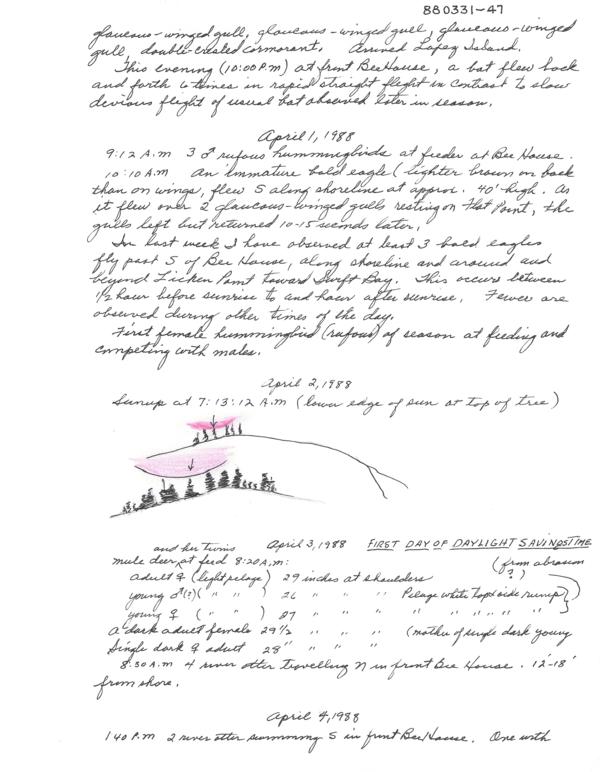 880331-47
glaucous-winged gull, glaucous-winged gull, glaucous-winged
gull, double-crested cormorant. Arrived Lopez Island.
This evening (10:00 P.M) at front Bee House, a bat flew back
and forth 6 times in rapid straight flight in contrast to slow
devious flight of usual bat observed later in season.
April 1, 1988
9:12 A.M 3 ♂ rufous hummingbirds at feeder at Bee House.
10:10 A.M An immature bald eagle (lighter brown on back
than on wings, flew S along shoreline at approx. 40' high. As
it flew over 2 glaucous-winged gulls resting on Flat Point, the
gulls left but returned 10-15 seconds later.
In last week I have observed at least 3 bald eagles
fly past S of Bee House, along shoreline and around and
beyond Point toward Swift Bay. This occurs between
1/2 hour before sunrise to and hour after sunrise. Fewer are
observed during other times of the day.
First female hummingbird (rufous) of season at feeding and
competing with males.
April 2, 1988
Sunup at 7:13:12 A.M (lower edge of sun at top of tree)
April 3, 1988 FIRST DAY OF DAYLIGHT SAVINGS TIME
and her twins
mule deer ^ at feed 8:20 A.M: (from abrasion
?)
adult ♀ (light pelage) 29 inches at shoulders
young ♂(?) ( " " ) 26 " " " Pelage white top side rump
young ♀ ( " " ) 27 " " " " " " " "
A dark adult female 29 1/2 " " " (mother of single dark young
Single dark ♀ adult 28" " " "
8:30 A.M 4 river otter travelling N in front Bee House. 12'-18'
from shore.
April 4, 1988
1 40 P.M 2 river otter swimming S in front Bee House. One with